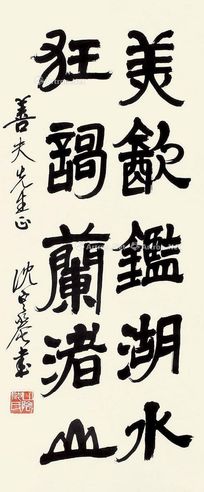 美歠鑑湖水
狂謌蘭渚山
善夫先生正
沈
書